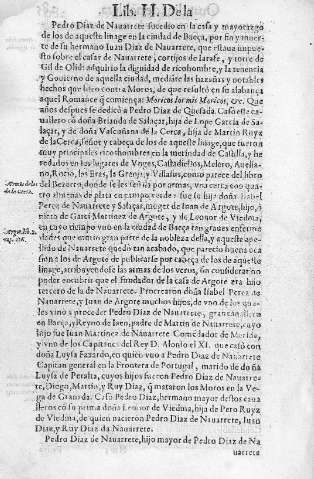 Lib. II. De la
Pedro Diaz de Nauarrete sucedio en la casa y mayorazgo
de los de aqueste linage en la ciudad de Baeça, por fin y muer-
te de su hermano Iuan Diaz de Nauarrete, que estaua impue-
sto sobre el casar de Nauarrete, cortijos de Iarafe, y torre de
Gil de Olid: adquirio la dignidad de ricohombre, y la tenencia
y Gouierno de aquella ciudad, mediãte las hazañas y notables
hechos que hizo contra Moros, de que resultò en su alabança
aquel Romance q̃ comiença: Moricos los mis Moricos, &c. Que
años despues se dedicò a Pedro Diaz de Quesada. Casò este ca-
uallero cõ doña Brianda de Salaçar, hija de Lope Garcia de Sa-
laçar, y de doña Vascuñana de la Cerca, hija de Martin Royz
de la Cerca, señor y cabeça de los de aqueste linage, que fueron
muy principales ricoshombres en la merindad de Castilla, y he
redados en los lugares de Castadiellos, Melero, Aurelia-
no, Rozio, las Eras, la Granja, y Villasus, como parece del libro
del Bezerro, donde se les señala por armas, vna cerca con qua-
tro almenas de plata en campo verde: fue su hija doña Isabel
Perez de Nauarrete y Salaçar, muger de Iuan de Argote, hijo, ò
nieto de Garci Martinez de Argote, y de Leonor de Viedma,
en cuyo tiempo vino en la ciudad de Baeça tan grande enferme
dad que murio gran parte de la nobleza della, y aqueste ape-
llido de Nauarrete quedò tan acabado, que parecio buena oca
sion a los de Argote de publicarse por cabeça de los de aqueste
linage, atribuyendose las armas de los veros, sin consideracion
poder encubrir que el fundador de la casa de Argote era hijo
tercero de la de Nauarrete. Procrearon doña Isabel Perez de
Nauarrete, y Iuan de Argote muchos hijos, de vno de los qua-
les vino a preceder Pedro Diaz de Nauarrete, gran cauallero
en Baeça, y Reyno de Iaen, padre de Martin de Nauarrete, cuyo
hijo fue Iuan Martinez de Nauarrete Comẽdador de Merida,
y vno de los Capitanes del Rey D. Alonso el XI. que casò con
doña Luysa Faxardo, en quien vuo a Pedro Diaz de Nauarrete
Capitan general en la Frontera de Portugal, marido de doña
Luysa de Peralta, cuyos hijos fueron Pedro Diaz de Nauarre-
te, Diego, Martin, y Ruy Diaz, q̃ mataron los Moros en la Ve-
ga de Granada. Casò Pedro Diaz, hermano mayor destos caua
lleros cõ su prima doña Leonor de Viedma, hija de Pero Ruyz
de Viedma, de quien nacieron Pedro Diaz de Nauarrete, Iuan
Diaz, y Ruy Diaz de Nauarrete.
Pedro Diaz de Nauarrete, hijo mayor de Pedro Diaz de Na
uarrete